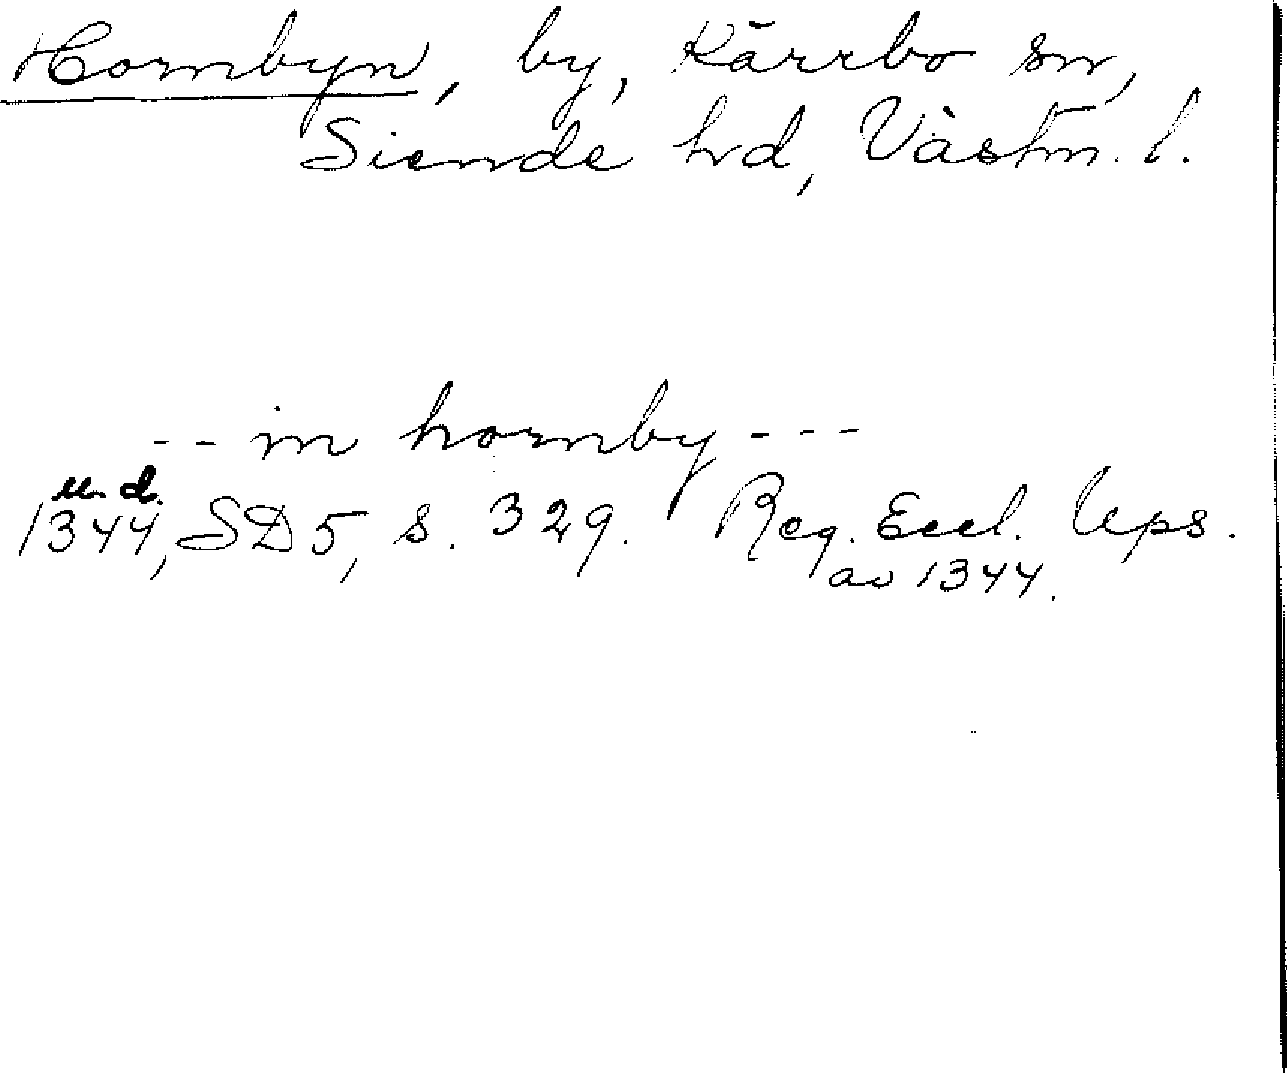 Hornbyn, by, Kärrbo sn,
Siende hd, Västm. l.
-- in hornby ---
u. d.
1344, SD5, s. 329. Reg. Eccl. Ups.
av 1344.